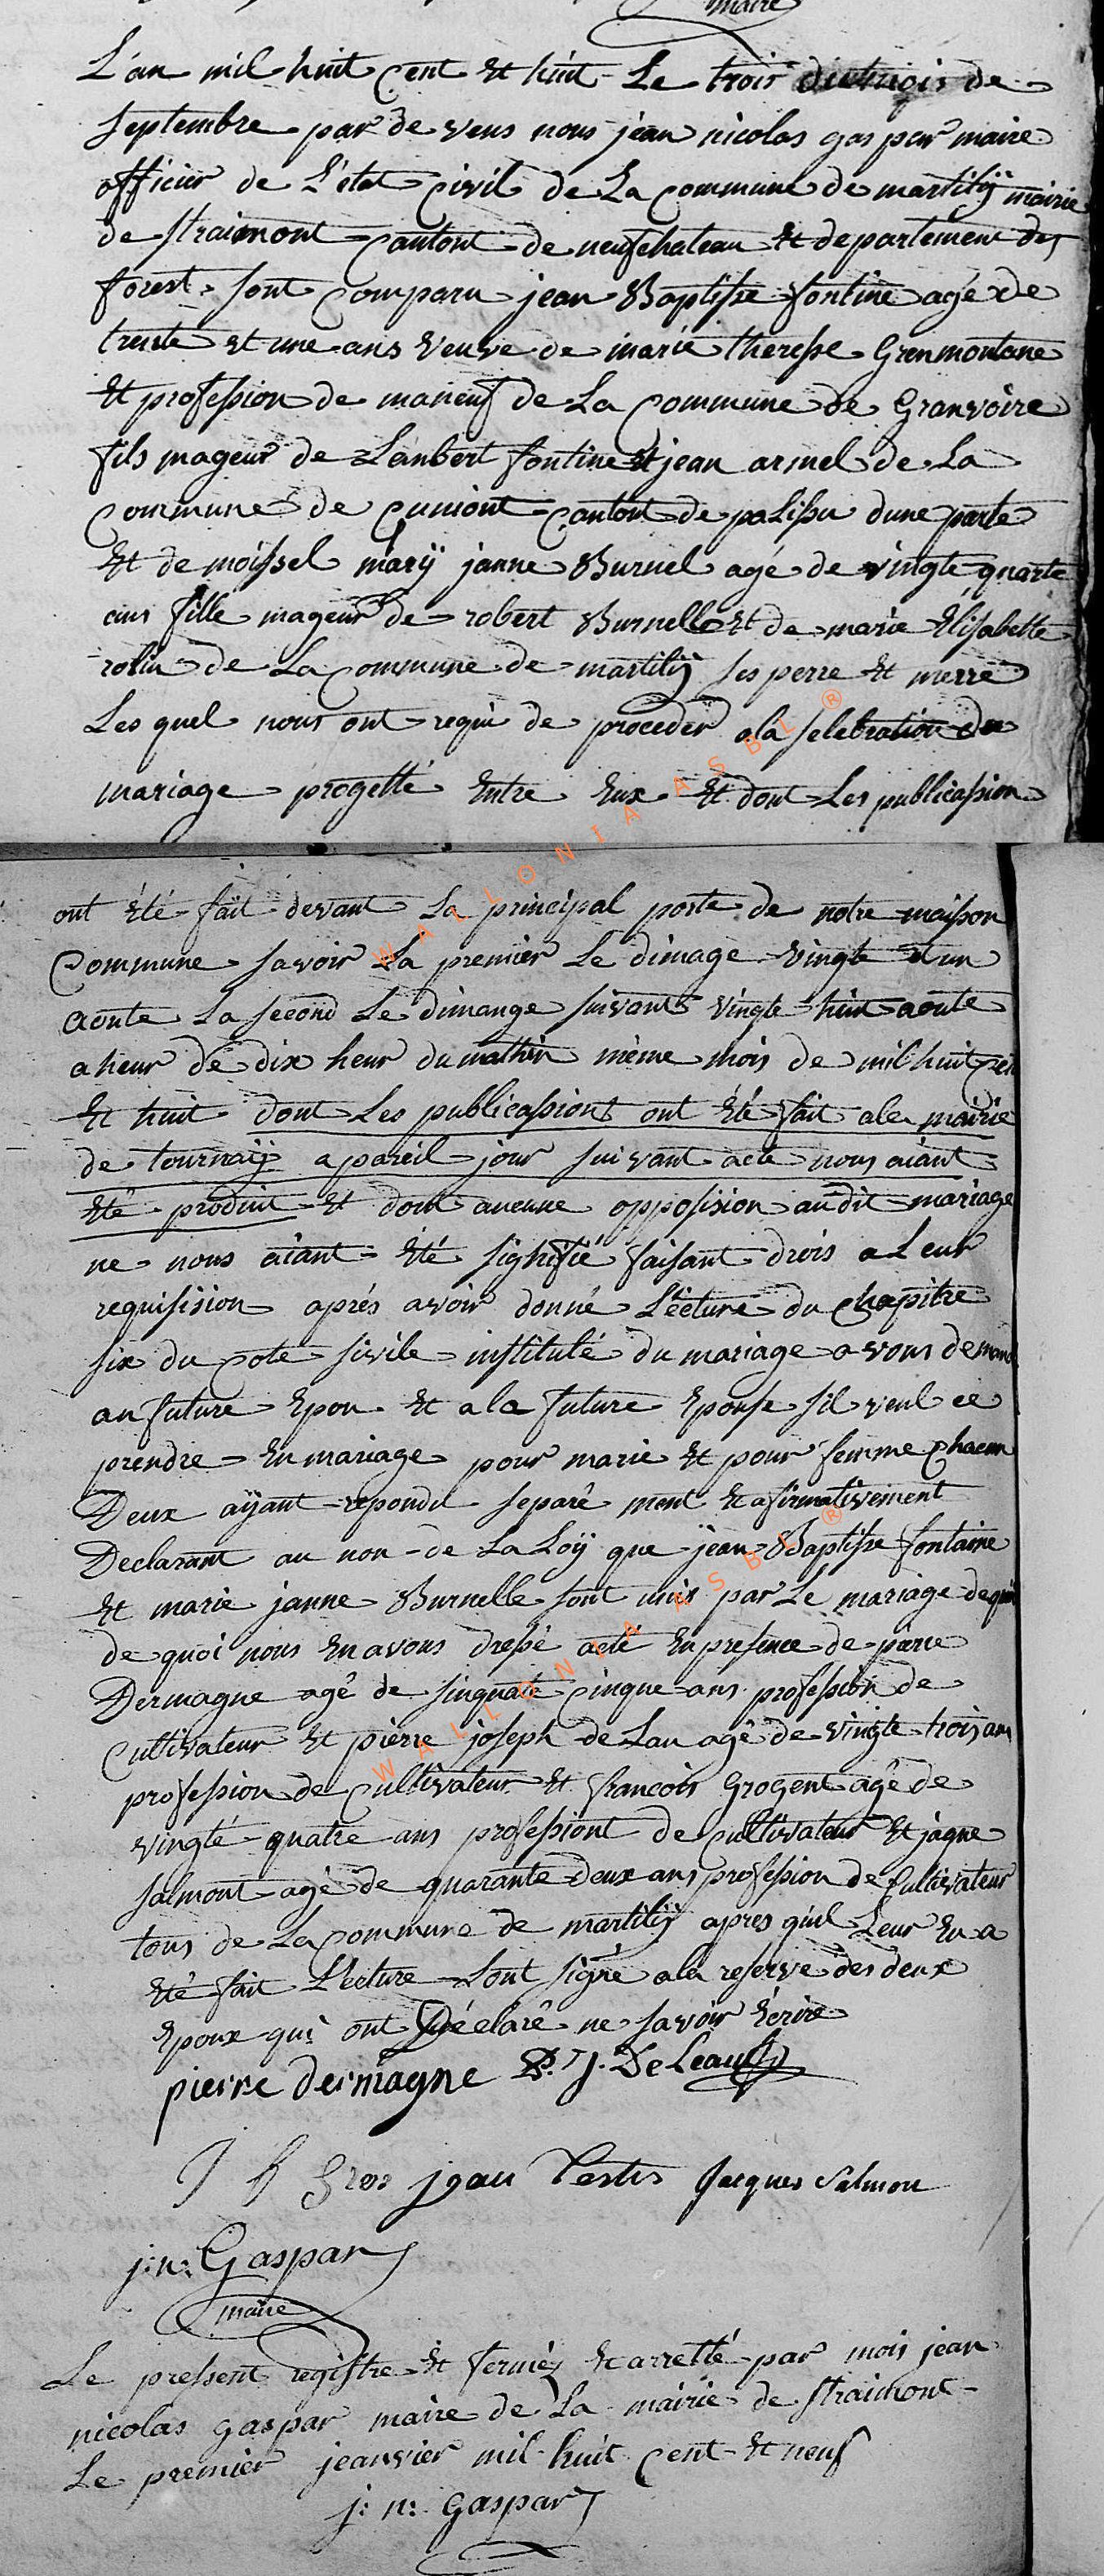 maire
L'an mil huit cent et huit Le trois du mois de
septembre par de vens nous jean nicolas gaspar maire
officier de L'etat civil de La commune de martilÿ mairie
de straimont cantont de neufchateau et departement des
forest sont comparu jean Baptisse fontine agé de
trente et une ans veuve de marie theresse Grenmontane
Et profession de maneuf de La commune de Granvoire
fils mageur de Lanbert fontine et jean armel de La
commune de cuniont cantont de palissu dune parte
Et de moissel marÿ janne Burnel agé de vingte quarte
ans fille mageur de robert Burnelle et de marie Elisabette
rolin de La commune de martilÿ ses perre et merre
Les quel nous ont requi de proceder a la selebration du
mariage progetté Entre Eux Et dont Les publicassion
ont été fait devant La principal porte de notre maisson
commune savoir La premier Le dimage vingte et un
aoute La second Le dimange suivant vingte huit aoute
a heur de dix heur du mathin même mois de mil huit cen
Et huit dont Les publicassiont ont été fait a la mairie
de tournaÿ a pareil jour suivant acte nous aiant
Eté produit Et dont aucune opposision audit mariage
ne nous aiant Eté signifié faisant drois a Leur
requisision aprés avoir donné L'ecture du chapitre
six du cote sivile institulé du mariage avons demand
au future Epou Et a la future Epouse s'il veul ce
prendre En mariage pour marie Et pour femme chacun
Deux aÿant repondu separé ment Et afirmativement
Declarant au non de La Loÿ que jean Baptisse fontaine
Et marie janne Burnelle sont unis par Le mariage de quoi
de quoi nous En avons dressé acte En presence de pierre
Dermagne agé de sinquate cinque ans profession de
cultivateur Et pierre joseph de Lau agé de vingte trois ans
profession de cultivateur Et francois Grogent agé de
vingté quatre ans professiont de cultivateur Et jaque
salmont agé de quarante deux ans profession de cultivateur
tous de La commune de martilÿ aprés quil Leur En a
Eté fait L'ecture Lont signé a la reserve des deux
Epoux qui ont Déclaré ne savoir Ecrire
pierre dermagne P. J. DeLeau
J f Gros jean Testis Jacques Salmon
j: n: Gaspar
maire
Le pressent registre Et fermé Et arretté par mois jean
nicolas gaspar maire de La mairie de straimont
Le premier jeanvier mil huit cent Et neuf
j: n: gaspar
WALLONIA ASBL ®
WALLONIA ASBL ®